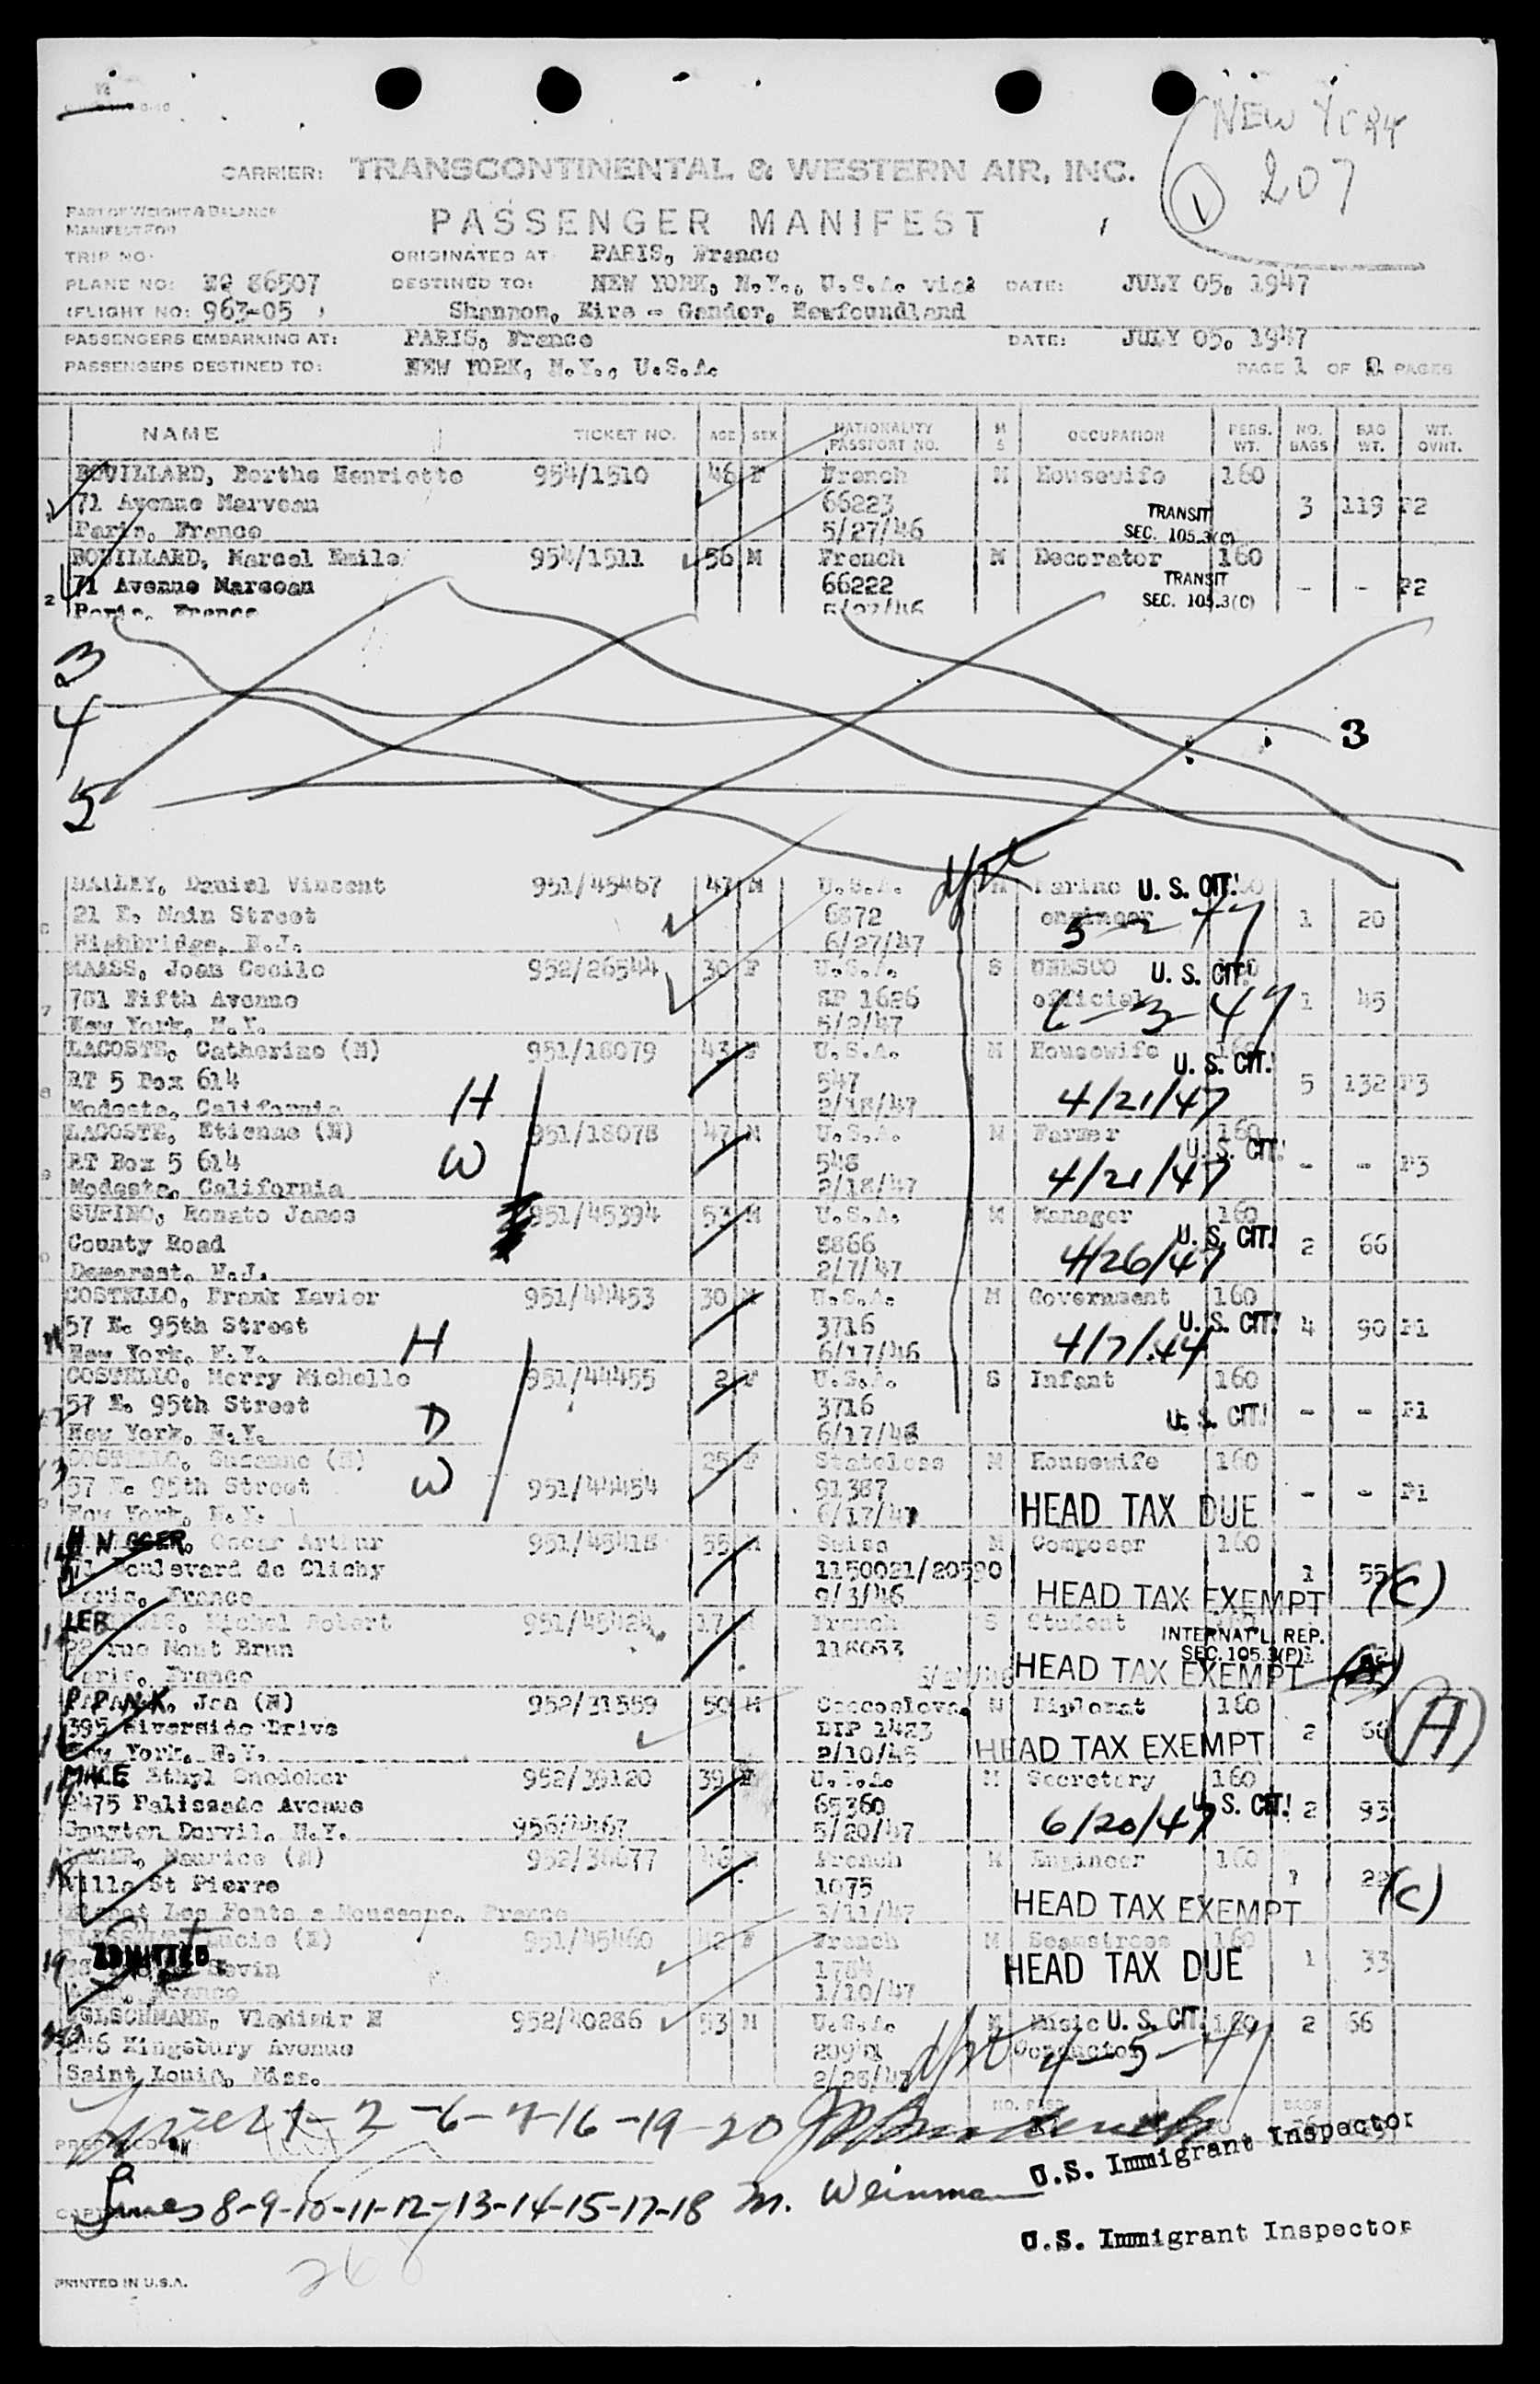 NEW YORK
207
1
CARRIER: TRANSCONTINENTAL & WESTERN AIR, INC.
PART OF WEIGHT & BALANCE
MANIFEST FOR
PASSENGER MANIFEST
TRIP NO. ORIGINATED AT: PARIS, France
PLANE NO: 86507 DESTINED TO: NEW YORK, N.Y., U.S.A. via: DATE: JULY 05, 1947
FLIGHT NO: 963-05 Shannon, Eire - Gander, Newfoundland
PASSENGERS EMBARKING AT: PARIS, France DATE: JULY 05, 1947
PASSENGERS DESTINED TO: NEW YORK, N.Y., U.S.A. PAGE 1 OF 2 PAGES
NAME TICKET NO. AGE SEX NATIONALITY PASSPORT NO. M S OCCUPATION PERS. WT. NO. BAGS BAG WT. WT. OVHT.
BOUILLARD, Berthe Henriette 954/1510 46 F French M Housewife 160
71 Avenue Marceau 66223 TRANSIT 3 119 P2
Paris, France 5/27/46 SEC. 105.3(C)
BOUILLARD, Marcel Emile 954/1511 56 M French M Decorator 160
2 71 Avenue Marceau 66222 TRANSIT - - P2
Paris, France 5/27/46 SEC. 105.3(C)
3
4
3
5
DAILEY, Daniel Vincent 951/45467 47 M U.S.A. M Marine U. S. CIT!
21 E. Main Street 6872 engineer 1 20
Highbridge, N.J. 6/27/47 5-2-47
MAASS, Joan Cecile 952/26544 30 F U.S.A. S UNESCO U. S. CIT!
7 781 Fifth Avenue SP 1626 official 1 45
New York, N.Y. 5/2/47 6-3-47
LACOSTE, Catherine (M) 951/18079 43 F U.S.A. M Housewife 160 U. S. CIT!
8 RT 5 Box 614 H 547 5 132 P3
Modesto, California 2/18/47 4/21/47
LACOSTE, Etienne (M) 951/18078 47 M U.S.A. M Farmer 160 U. S. CIT!
9 RT Box 5 614 W 548 - - P3
Modesto, California 2/18/47 4/21/47
SUPINO, Renato James 951/45394 53 M U.S.A. M Manager 160
County Road 8866 U. S. CIT! 2 66
Demarest, N.J. 2/7/47 4/26/47
COSTELLO, Frank Xavier 951/44453 30 M U.S.A. M Government 160
11 57 E. 95th Street 3716 U. S. CIT! 4 90 P1
New York, N.Y. H 6/17/46 4/7/44
COSTELLO, Merry Michelle 951/44455 2 F U.S.A. S Infant 160
57 E. 95th Street 3716 U. S. CIT! - - P1
New York, N.Y. D 6/17/46
COSTELLO, Suzanne (M) 25 F Stateless M Housewife 160
13 57 E. 95th Street W 951/44454 91387 - - P1
New York, N.Y. 6/17/47 HEAD TAX DUE
Oscar Arthur 951/45418 55 M Swiss M Composer 160
14 Boulevard de Clichy 1150021/20590 1 55 (C)
Paris, France 9/3/46 HEAD TAX EXEMPT
Michel Robert 951/45424 17 French S Student
rue Mont Brun 118053 INTERNAT'L REP.
Paris, France SEC. 105.3(P) HEAD TAX EXEMPT (A)
PAPANEK, Jan (M) 952/31559 50 M Czecoslova. M Diplomat 160
395 Riverside Drive DIP 1423 2 66 (A)
New York, N.Y. 2/10/46 HEAD TAX EXEMPT
MACE Ethyl Snedeker 952/39120 39 F U.S.A. M Secretary 160
2475 Palissade Avenue 65360 U. S. CIT! 2 93
Spuyten Duyvil, N.Y. 956/4467 5/20/47 6/20/47
Maurice (M) 46 French M Engineer 160
Villa St Pierre 1075 22 (C)
France 3/11/47 HEAD TAX EXEMPT
19 ADMITTED Lucie (M) 951/45460 42 F French M Seamstress 160
1784 HEAD TAX DUE 1 33
France 1/10/47
GOLSCHMANN, Vladimir M 952/40286 53 M U.S.A. M Music U. S. CIT! 2 56
Kingsbury Avenue Conductor
Saint Louis, Miss. 4-5-47
Lines 1-2-6-7-16-19-20
NO. PASS. BAGS
PREPARED BY: U.S. Immigrant Inspector
Lines 8-9-10-11-12-13-14-15-17-18 M. Weinman
U.S. Immigrant Inspector
268
PRINTED IN U.S.A.